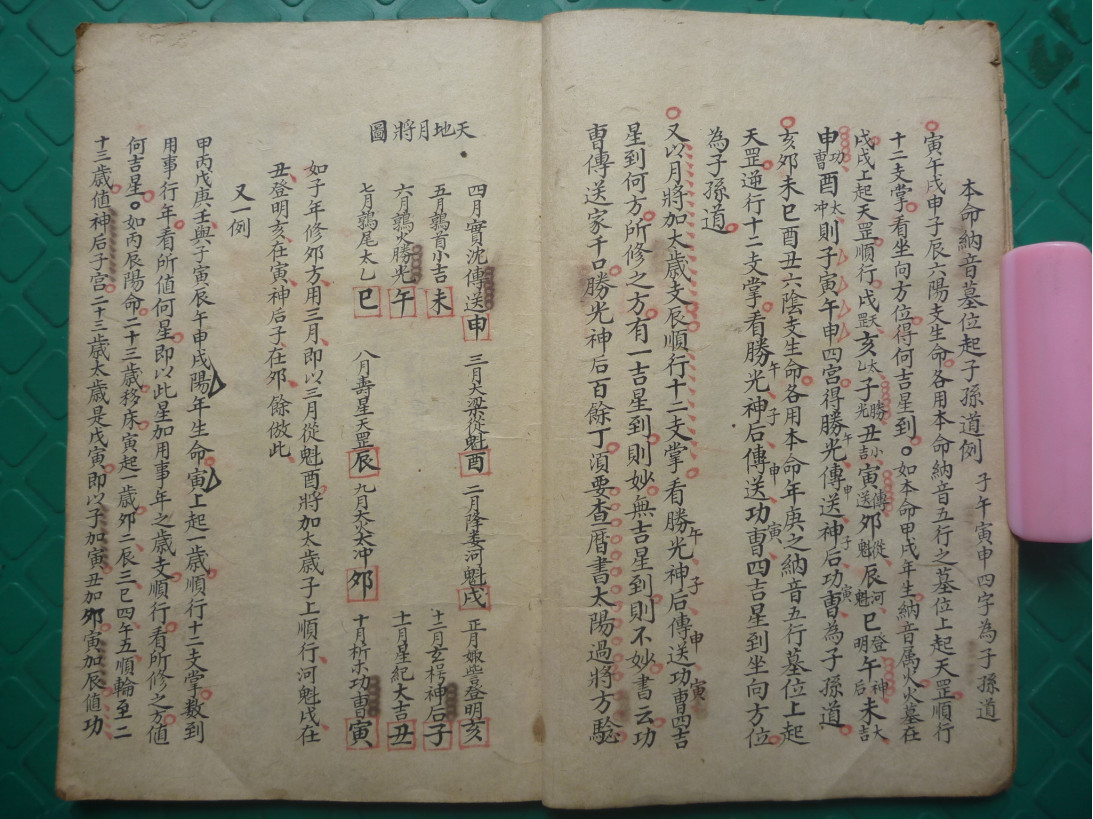 本命納音墓位起子孫道例 子午寅申四字為子孫道
寅午戌申子辰六陽支生命各用本命納音五行之墓位上起天罡順行
十二支掌看坐向方位得何吉星到如本命甲戌年生納音属火火墓在
戌戌上起天罡順行戌天罡亥太乙子勝光丑小吉寅傳送夘從魁辰河魁巳登明午神后未大吉
申功曹酉太冲則子寅午申四宮得勝光午傳送申神后子功曹寅為子孫道
亥夘未巳酉丑六陰支生命各用本命年庚之納音五行墓位上起
天罡逆行十二支掌看勝光午神后子傳送申功曹寅四吉星到坐向方位
為子孫道
又以月將加太歲支辰順行十二支掌看勝光午神后子傳送申功曹寅四吉
星到何方所修之方有一吉星到則妙無吉星到則不妙書云功
曹傳送家千口勝光神后百餘丁須要查曆書太陽過將方騐
天地月將圖
四月實沈傳送申 三月大梁從魁酉 二月降婁河魁戌 正月娵訾登明亥
五月鶉首小吉未 十二月玄枵神后子
六月鶉火勝光午 十一月星紀大吉丑
七月鶉尾太乙巳 八月壽星天罡辰 九月大火太冲夘 十月析木功曹寅
如子年修夘方用三月即以三月從魁酉將加太歲子上順行河魁戌在
丑登明亥在寅神后子在夘餘倣此
又一例
甲丙戊庚壬與子寅辰午申戌陽年生命寅上起一歲順行十二支掌数到
用事行年看所值何星即以此星加用事年之歲支順行看所修之方值
何吉星如丙辰陽命二十三歲移床寅起一歲夘二辰三巳四午五順輪至二
十三歲值神后子宮二十三歲太歲是戊寅即以子加寅丑加夘寅加辰值功